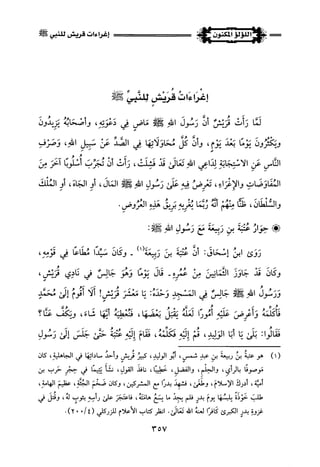 إغراءات قريش للنبي ﷺ
اللؤلؤ المكنون
إِغْرَاءَاتُ قُرَيْشٍ لِلنَّبِيِّ ﷺ
لَمَّا رَأَتْ قُرَيْشٌ أَنَّ رَسُولَ اللهِ ﷺ مَاضٍ فِي دَعْوَتِهِ، وأَصْحَابُهُ يَزِيدُونَ
ويَكْثُرُونَ يَوْمًا بَعْدَ يَوْمٍ، وأَنَّ كُلَّ مُحَاوَلَاتِهَا فِي الصَّدِّ عَنْ سَبِيلِ اللهِ، وَصَرْفِ
النَّاسِ عَنِ الِاسْتِجَابَةِ لِدَاعِي اللهِ تَعَالَى قَدْ فَشِلَتْ، رَأَتْ أَنْ تُجَرِّبَ أُسْلُوبًا آخَرَ مِنَ
المُفَاوَضَاتِ وَالإِغْرَاءِ، تَعْرِضُ فِيهِ عَلَى رَسُولِ اللهِ ﷺ المَالَ، أو الجَاهَ، أو المُلْكَ
والسُّلْطَانَ، ظَنًّا مِنْهُمْ أَنَّهُ رُبَّمَا يُغْرِيهِ بَرِيقُ هَذِهِ العُرُوضِ.
◉ حِوَارُ عُتْبَةَ بنِ رَبِيعَةَ مَعَ رَسُولِ اللهِ ﷺ:
رَوَى ابنُ إِسْحَاقَ: أن عُتْبَةَ بنَ رَبِيعَةَ(١) - وكَانَ سَيِّدًا مُطَاعًا فِي قَوْمِهِ،
وكَانَ قَدْ جَاوَزَ الثَّمَانِينَ مِنْ عُمُرِهِ - قَالَ يَوْمًا وَهُوَ جَالِسٌ فِي نَادِي قُرَيْشٍ،
وَرَسُولُ اللهِ ﷺ جَالِسٌ فِي الْمَسْجِدِ وَحْدَهُ: يَا مَعْشَرَ قُرَيْشٍ! أَلَا أَقُومُ إِلَى مُحَمَّدٍ
فَأُكَلِّمَهُ وَأَعْرِضَ عَلَيْهِ أُمُورًا لَعَلَّهُ يَقْبَلُ بَعْضَهَا، فَنُعْطِيَهُ أَيَّهَا شَاءَ، وَيَكُفُّ عَنَّا؟
فَقَالُوا: بَلَى يَا أَبَا الوَلِيدِ، قُمْ إِلَيْهِ فَكَلِّمْهُ، فَقَامَ إِلَيْهِ عُتْبَةُ حَتَّى جَلَسَ إِلَى رَسُولِ
(١) هو عتبةُ بنُ ربيعةَ بنِ عبدِ شمسٍ، أبو الوليدِ، كبيرُ قُريشٍ وأحدُ ساداتِهَا في الجاهليةِ، كان
مَوصوفًا بالرأي، والحِلْمِ، والفضلِ، خَطِيبًا، نافذَ القولِ، نشأ يَتِيمًا في حِجْرِ حَربِ بنِ
أميَّةَ، أدركَ الإسلامَ، وطَغَى، فشهِدَ بدرًا مع المشركينَ، وكان ضَخْمَ الجُثَّةِ، عظيمَ الهامةِ،
طلبَ خُوْذَةً يلبسُهَا يومَ بدرٍ فلم يجِدْ ما يَسَعُ هامَتَهُ، فاعتَجَرَ على رأسِهِ بثوبٍ لهُ، وقُتلَ في
غزوةِ بدرٍ الكبرى كافرًا لعنهُ اللهُ تَعَالَى. انظر كتاب الأعلام للزركلي (٢٠٠/٤).
٣٥٧